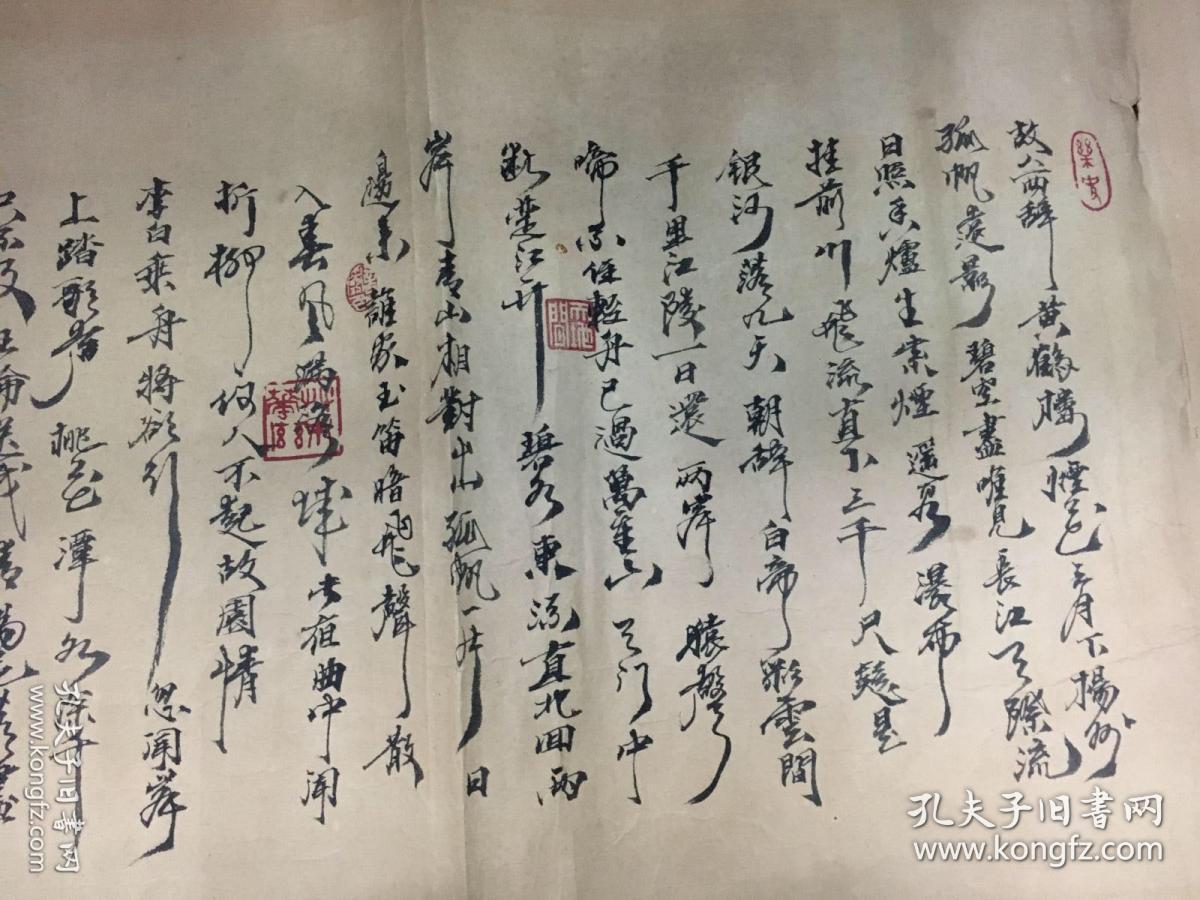 故人西辞黄鹤樓煙花三月下揚州
孤帆遠影碧空盡唯見長江天際流
日照香爐生紫煙遥看瀑布
挂前川飛流直下三千尺疑是
銀河落九天朝辞白帝彩雲間
千里江陵一日還两岸猿聲
啼不住輕舟已過萬重山天门中
断楚江开碧水東流直北回两
岸青山相對出孤帆一片日
邊来誰家玉笛暗飛聲散
入春風满洛城此夜曲中闻
折柳何人不起故園情
李白乗舟将欲行忽闻岸
上踏歌聲桃花潭水深千
尺不及汪倫送我情
孔夫子旧书网
www.kongfz.com
孔夫子旧书网
www.kongfz.com